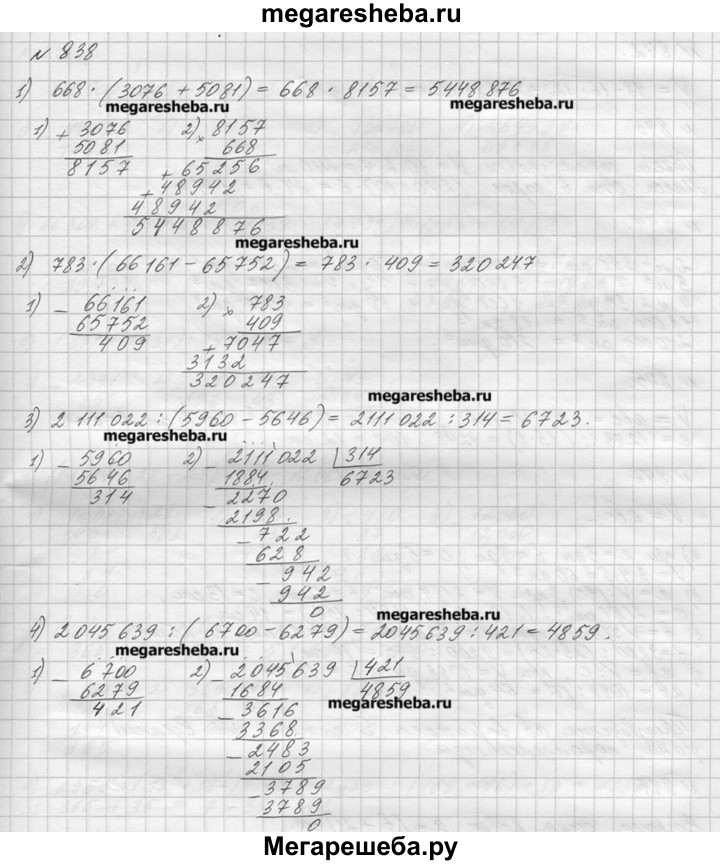 megaresheba.ru
№ 838
1) 668 · (3076 + 5081) = 668 · 8157 = 5448876
megaresheba.ru megaresheba.ru
1) + 3076 2) × 8157
5081 668
8157 + 65256
+ 48942
48942
5448876
megaresheba.ru
2) 783 · (66161 - 65752) = 783 · 409 = 320247
1) - 66161 2) × 783
65752 409
409 + 7047
3132
320247
megaresheba.ru
3) 2 111 022 : (5960 - 5646) = 2111 022 : 314 = 6723.
megaresheba.ru
1) - 5960 2) - 2111022 | 314
5646 1884 6723
314 - 2270
2198
- 722
628
- 942
942
0
megaresheba.ru
4) 2 045 639 : (6700 - 6279) = 2045639 : 421 = 4859.
megaresheba.ru
1) - 6700 2) - 2045639 | 421
6279 1684 4859
421 - 3616 megaresheba.ru
3368
- 2483
2105
- 3789
3789
0
Мегарешеба.ру